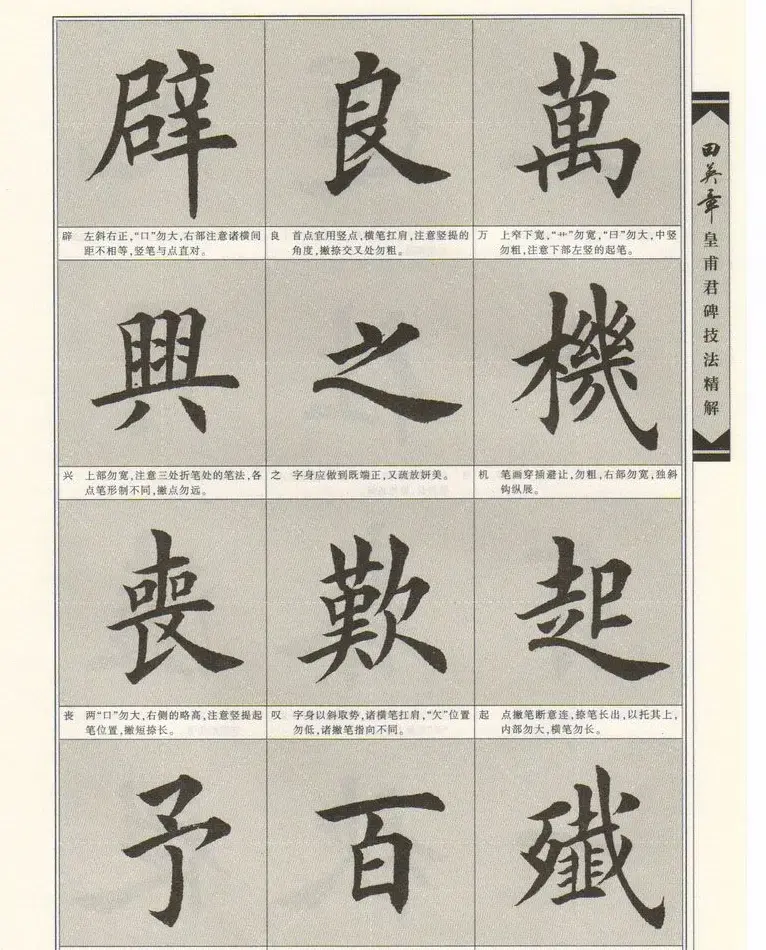 田英章
皇甫君碑技法精解
辟 良 萬
辟 左斜右正，“口”勿大，右部注意诸横间
距不相等，竖笔与点直对。
良 首点宜用竖点，横笔扛肩，注意竖提的
角度，撇捺交叉处勿粗。
万 上窄下宽，“艹”勿宽，“曰”勿大，中竖
勿粗，注意下部左竖的起笔。
興 之 機
兴 上部勿宽，注意三处折笔处的笔法，各
点笔形制不同，撇点勿远。
之 字身应做到既端正，又疏放妍美。
机 笔画穿插避让，勿粗，右部勿宽，独斜
钩纵展。
喪 歎 起
丧 两“口”勿大，右侧的略高，注意竖提起
笔位置，撇短捺长。
叹 字身以斜取势，诸横笔扛肩，“欠”位置
勿低，诸撇笔指向不同。
起 点撇笔断意连，捺笔长出，以托其上，
内部勿大，横笔勿长。
予 百 殲